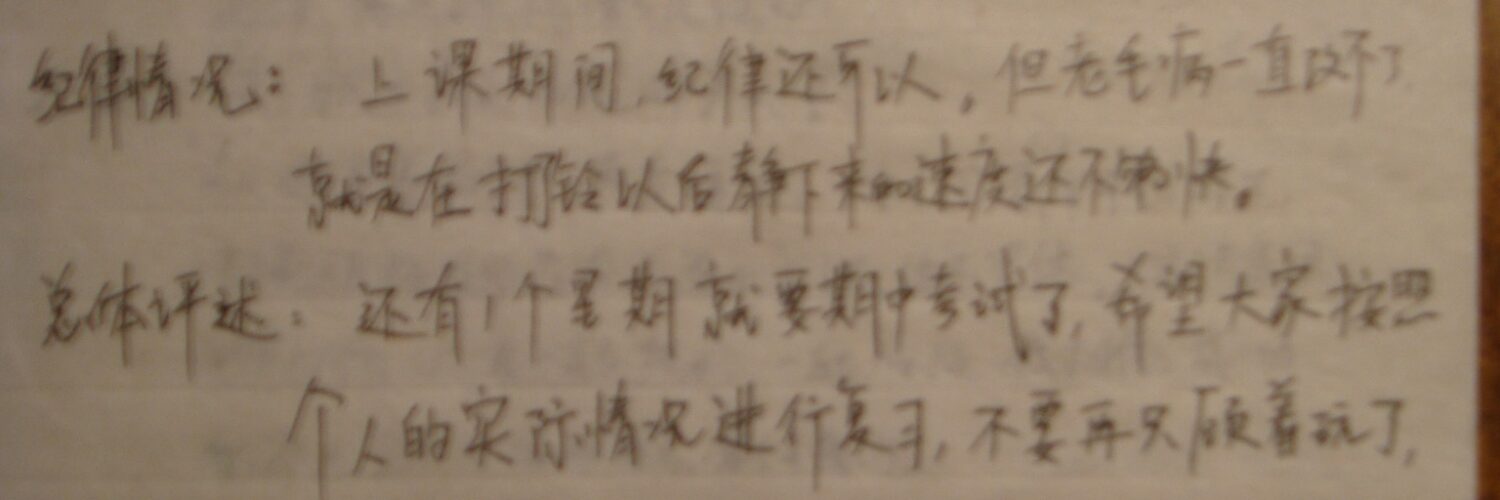 纪律情况：上课期间，纪律还可以。但老毛病一直改不了
就是在打铃以后静下来的速度还不够快。
总体评述：还有1个星期就要期中考试了，希望大家按照
个人的实际情况进行复习，不要再只顾着玩了，